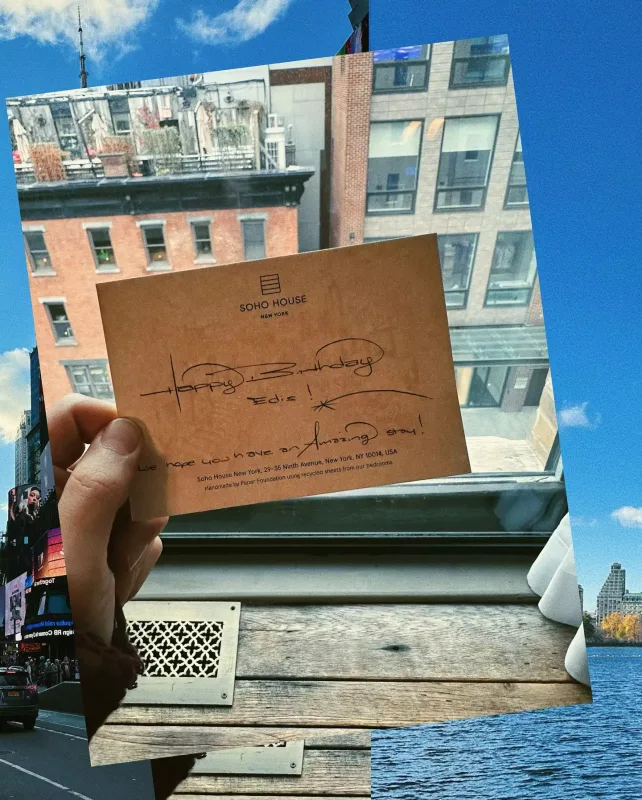 SOHO HOUSE
NEW YORK
Happy Birthday
Edis!
We hope you have an Amazing stay!
Soho House New York, 29-35 Ninth Avenue, New York, NY 10014, USA
Handmade by Paper Foundation using recycled sheets from our bedrooms